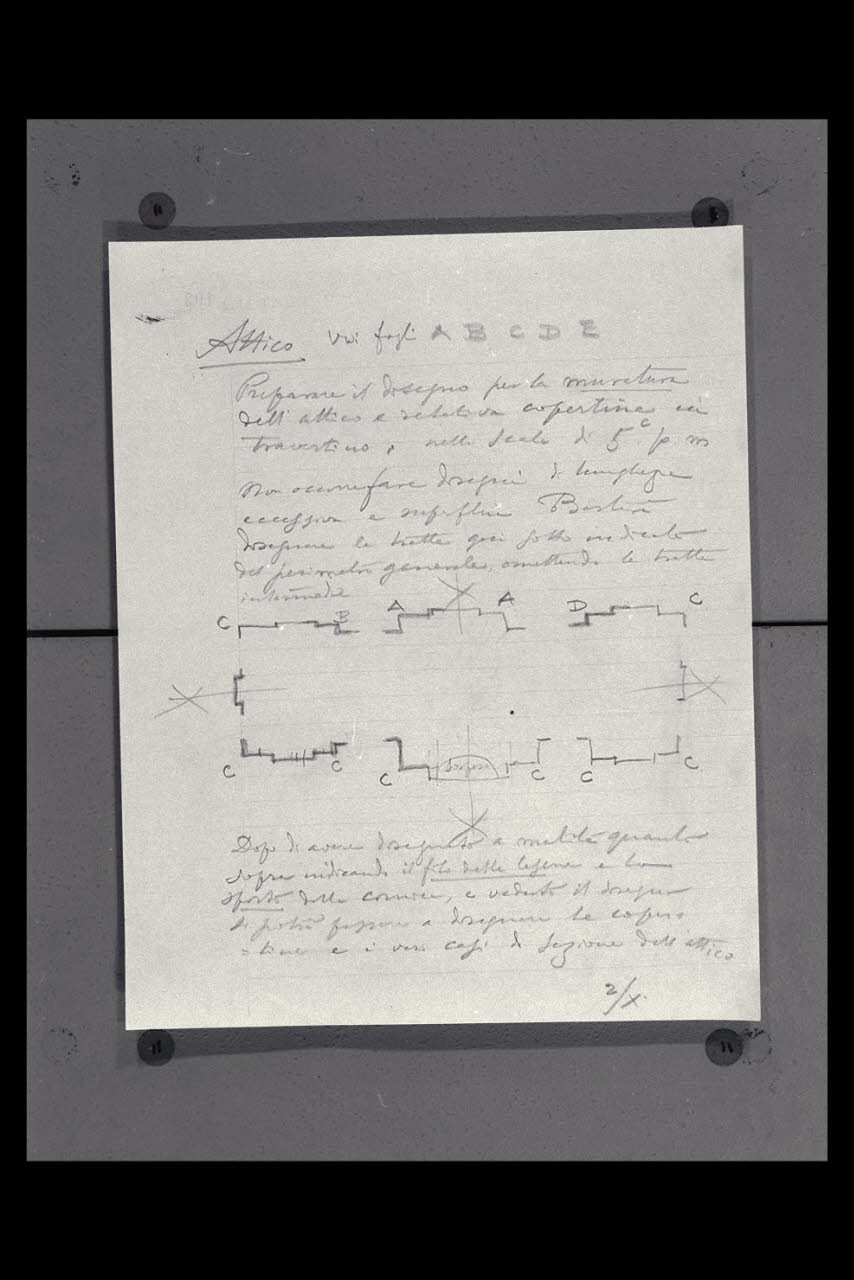 Attico Vedi fogli A B C D E
Preparare il disegno per la muratura
dell'attico e relativa copertina in
travertino, nella scala di 5 c p. m
Non occorre fare disegni di lunghezze
eccessiva e superflua Basterà
disegnare le tratte qui sotto indicate
del perimetro generale, omettendo le tratte
intermedie
C B A A D C
C C C C C C
Dopo di avere disegnato a matita quanto
sopra indicando il filo delle lesene e lo
sporto della cornice, e veduto il disegno
si potrà passare a disegnare le coper=
=tine e i vari casi di sezione dell'attico
2/X.